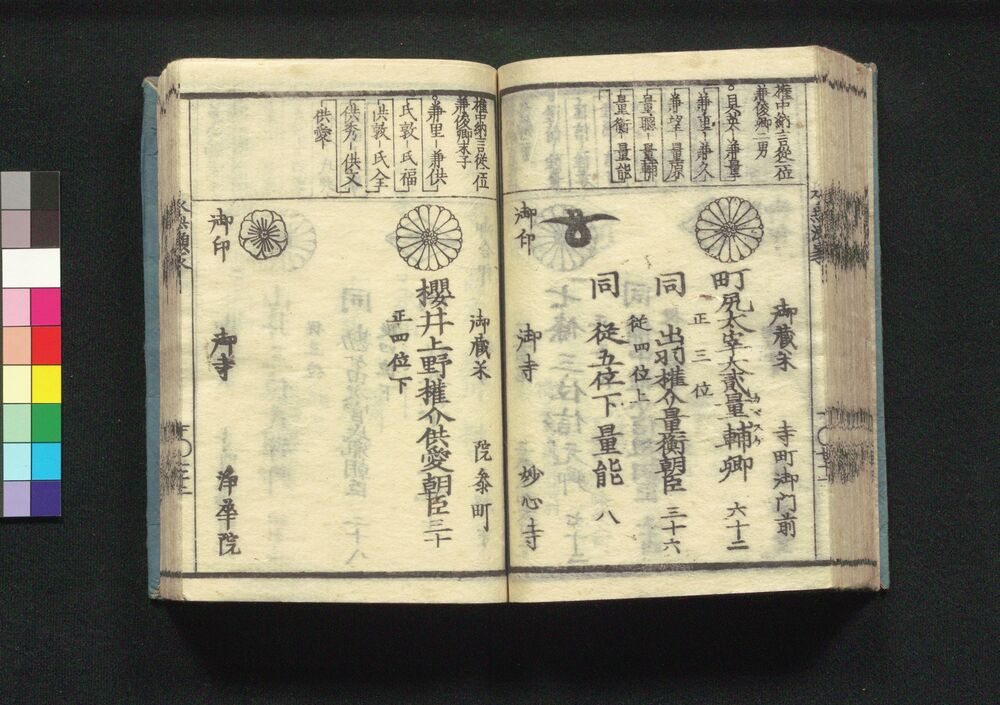 権中納言従一位
兼俊卿二男
具英－兼量
兼重－兼久
兼望－量原
量聰－量輔
量衡－量能
御蔵米　寺町御門前
町尻太宰大貳量輔卿　六十二
カズスケ
正三位
同　出羽権介量衡朝臣　三十六
従四位上
同　従五位下量能　八
御印　御寺　妙心寺
権中納言従一位
兼俊卿末子
兼里－兼供
氏敦－氏福
供敦－氏全
供秀－供文
供愛－
御蔵米　院参町
櫻井上野権介供愛朝臣　三十
正四位下
御印　御寺　浄華院